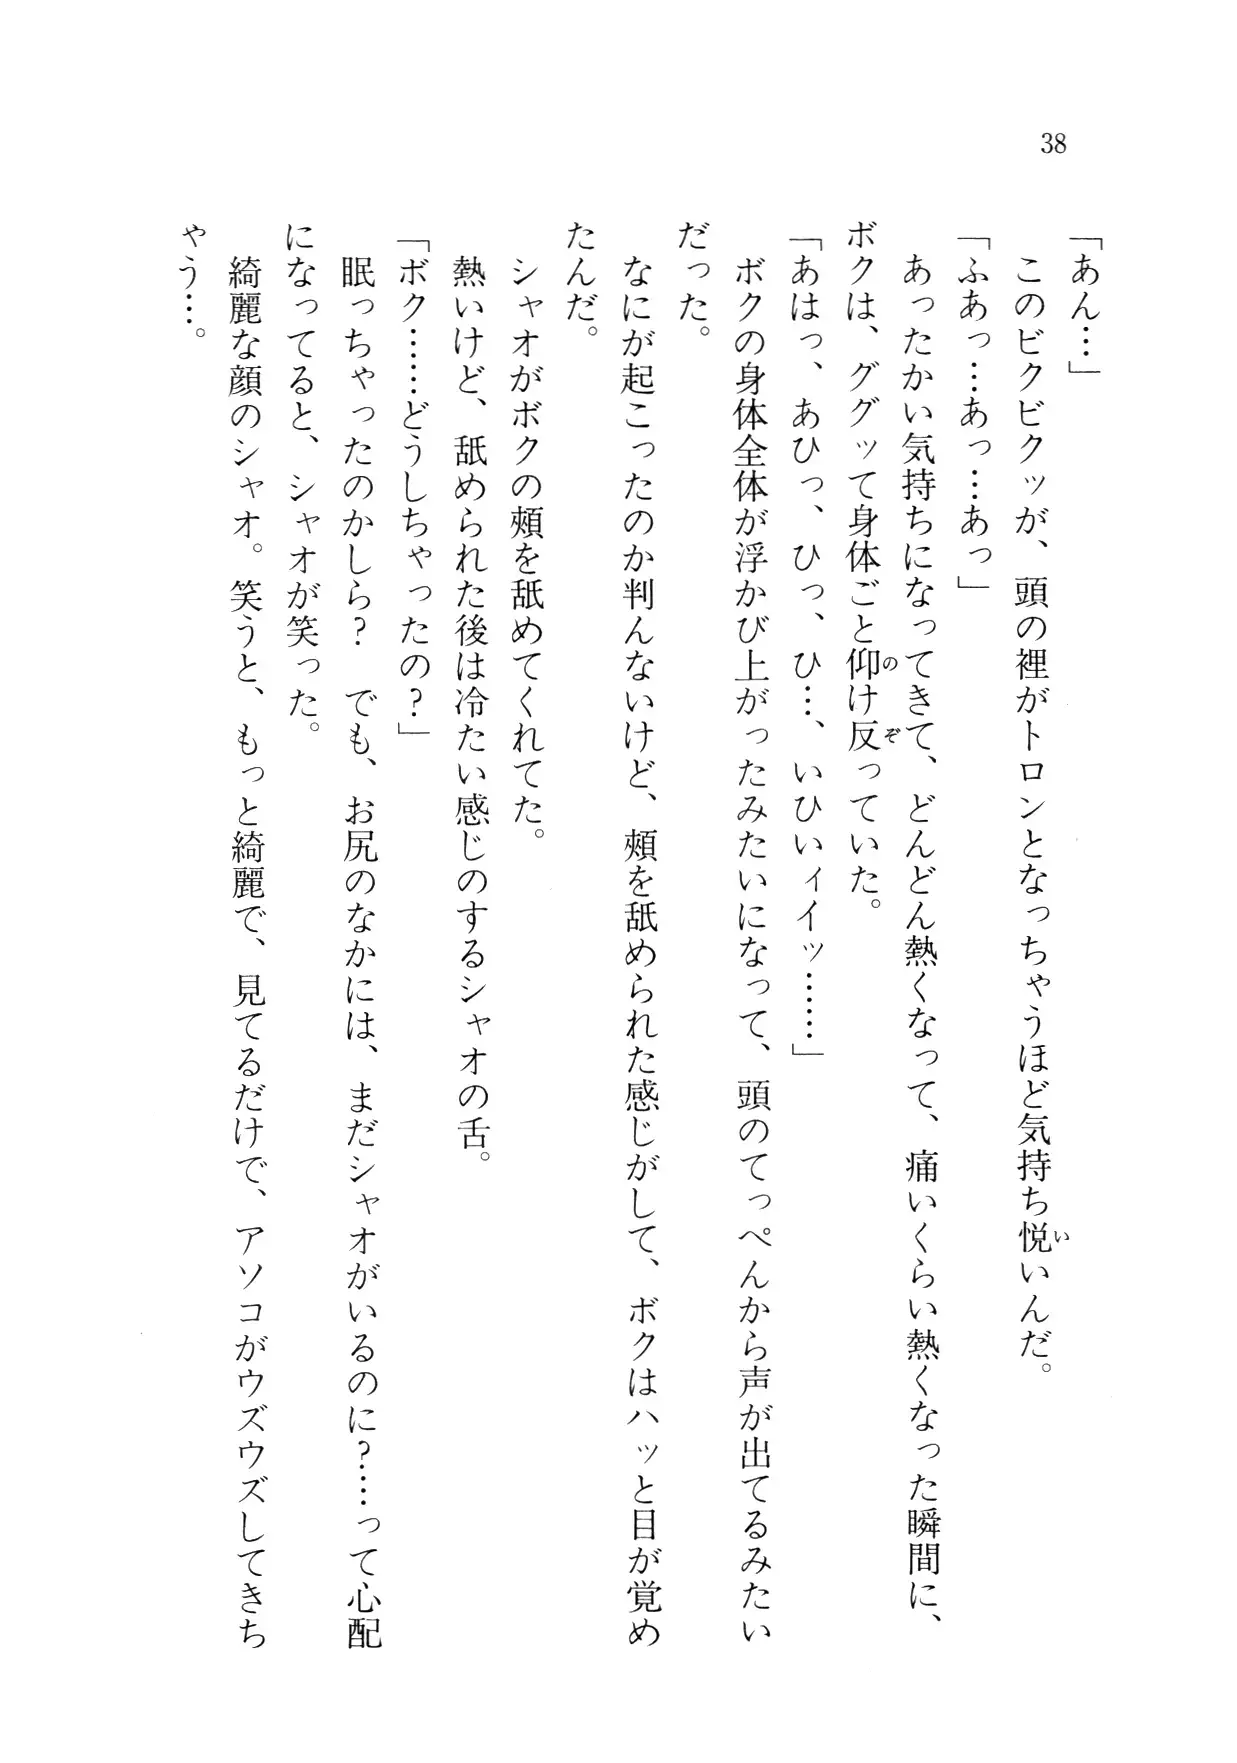 38
「あん…」
このビクビクッが、頭の裡がトロンとなっちゃうほど気持ち悦いんだ。
「ふあっ…あっ…あっ」
あったかい気持ちになってきて、どんどん熱くなって、痛いくらい熱くなった瞬間に、
ボクは、ググッて身体ごと仰け反っていた。
「あはっ、あひっ、ひっ、ひ…、いひいィイッ……」
ボクの身体全体が浮かび上がったみたいになって、頭のてっぺんから声が出てるみたい
だった。
なにが起こったのか判んないけど、頰を舐められた感じがして、ボクはハッと目が覚め
たんだ。
シャオがボクの頰を舐めてくれてた。
熱いけど、舐められた後は冷たい感じのするシャオの舌。
「ボク……どうしちゃったの?」
眠っちゃったのかしら?　でも、お尻のなかには、まだシャオがいるのに?……って心配
になってると、シャオが笑った。
綺麗な顔のシャオ。笑うと、もっと綺麗で、見てるだけで、アソコがウズウズしてきち
ゃう…。